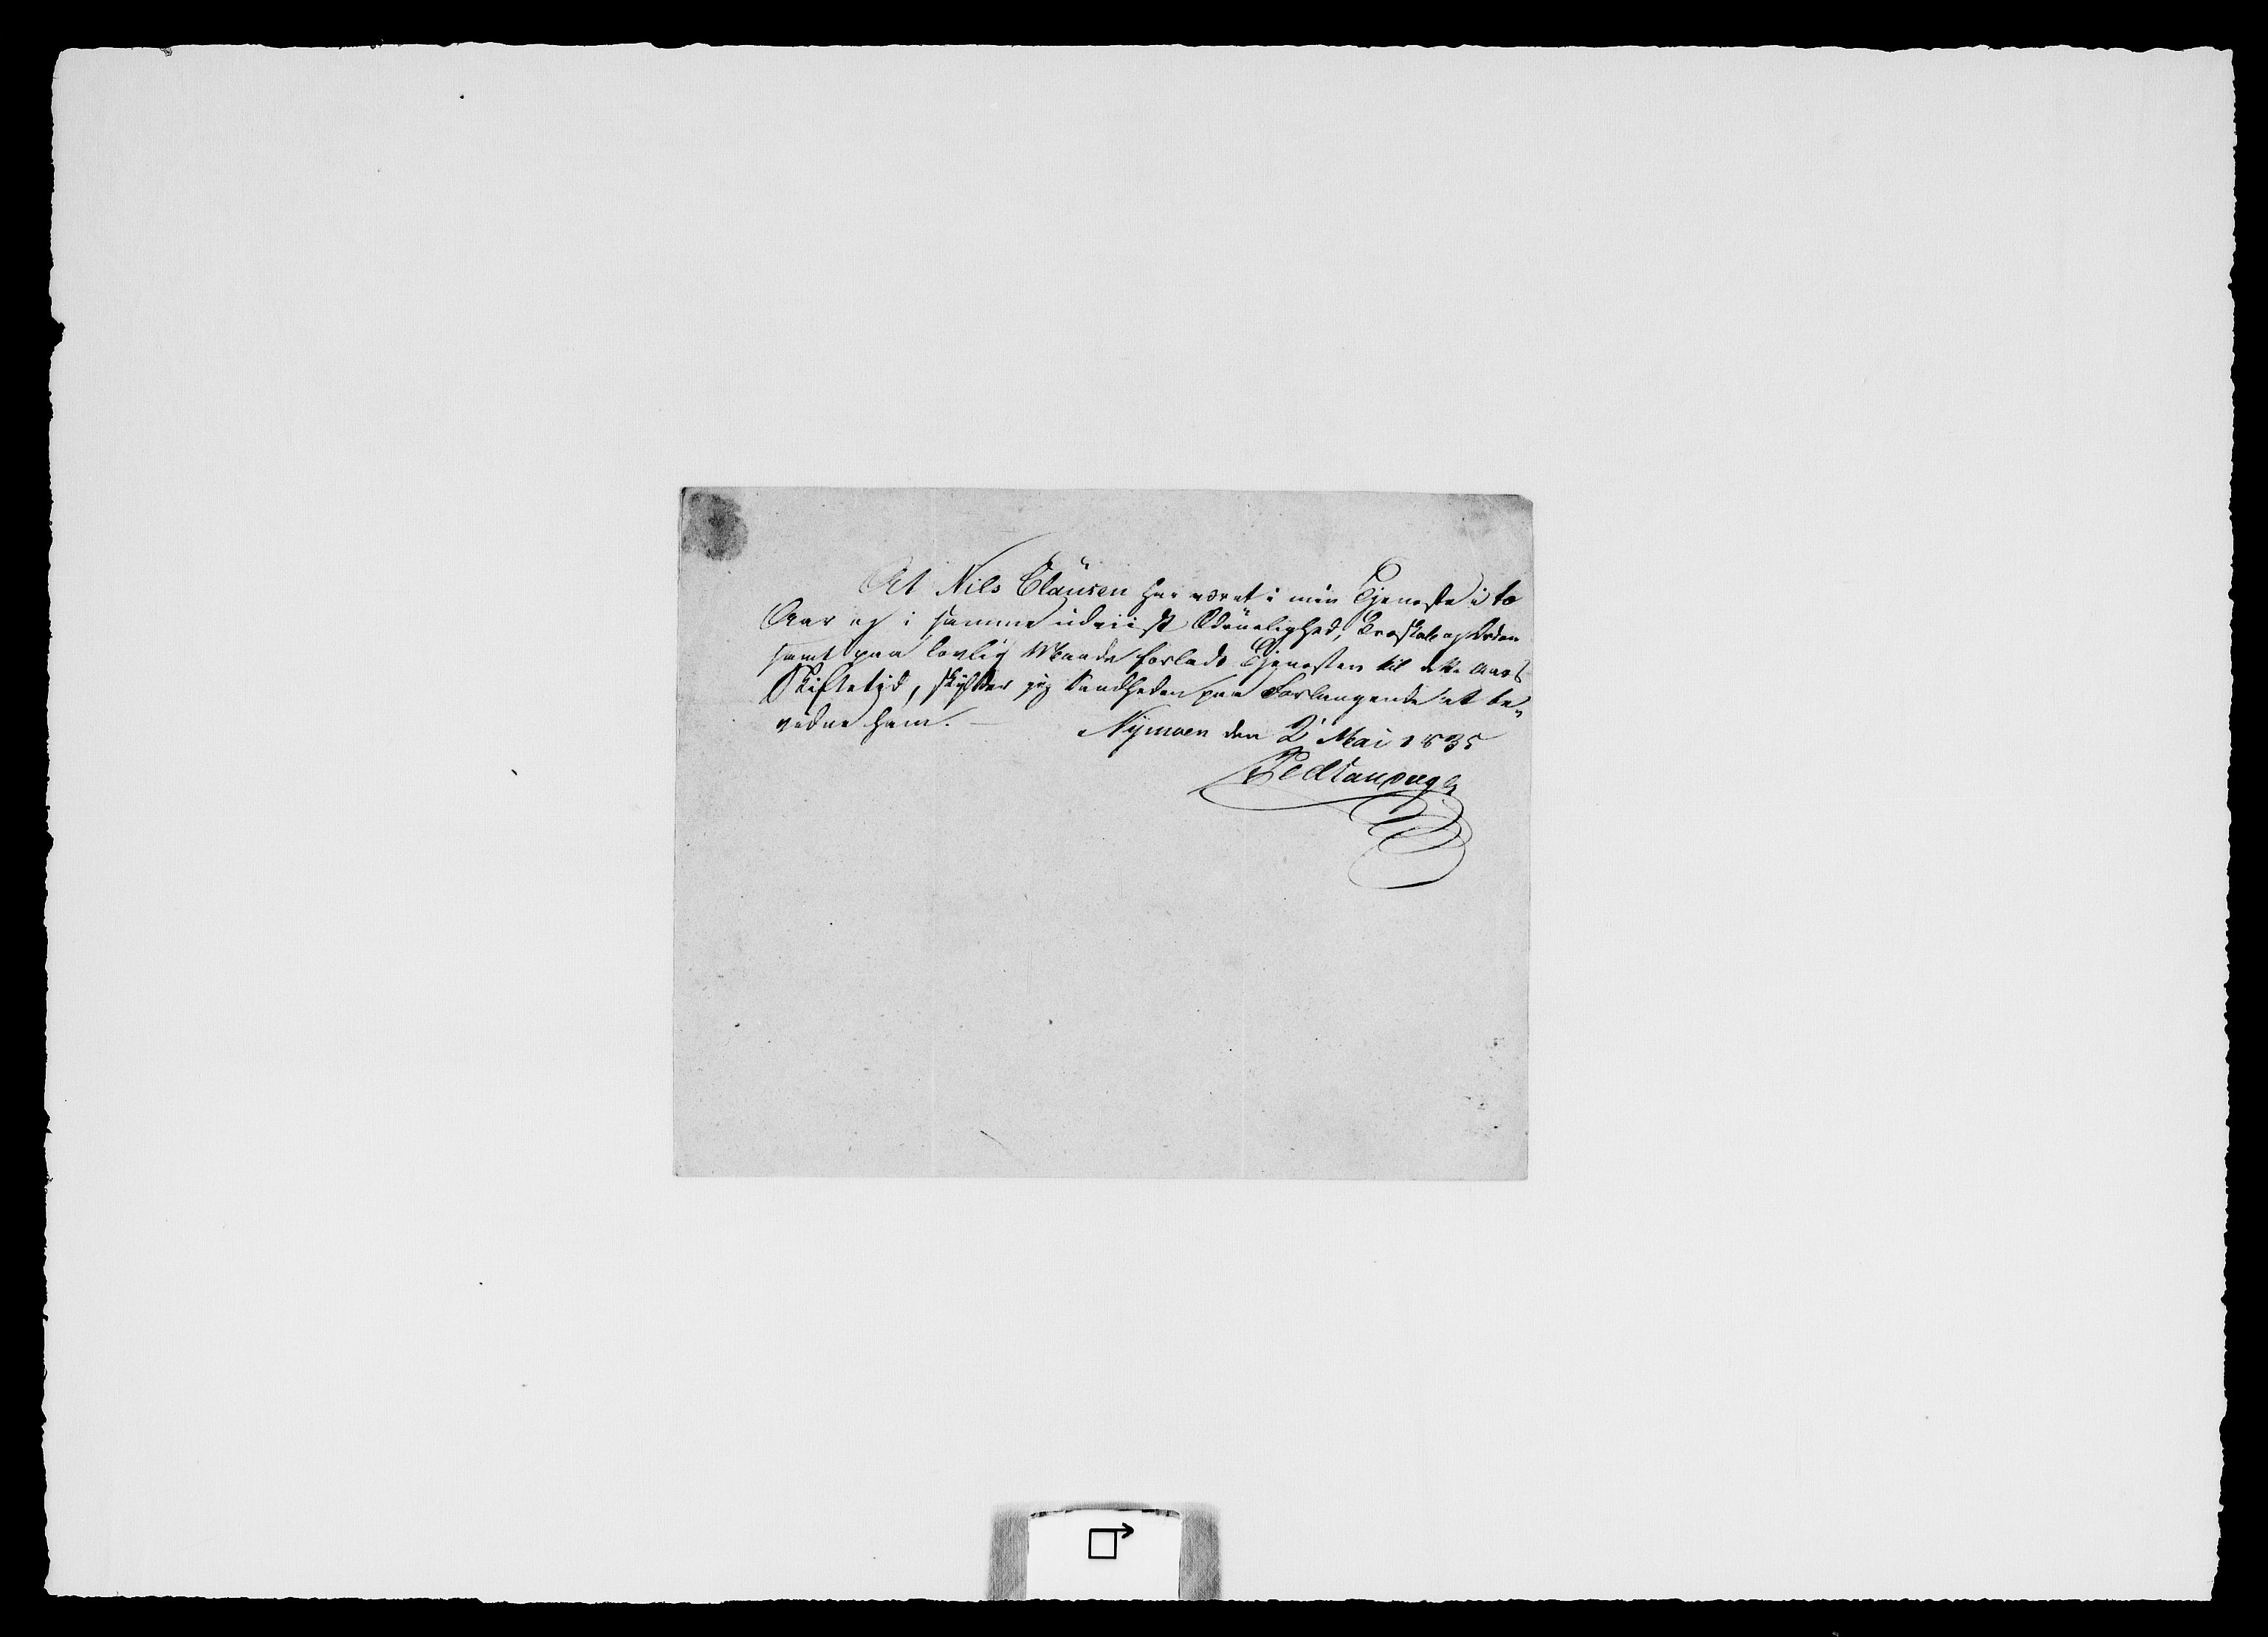 At Nils Clausen har været i min Tjeneste i to
Aar og i samme udviist Ædruelighed, Troskab og Orden
samt paa lovlig Maade forladt Tjenesten til dette Aars
Skiftetid, skylder jeg Sandheden paa Forlangende at be„
vidne ham. —
Nymoen den 2 Mai 1835